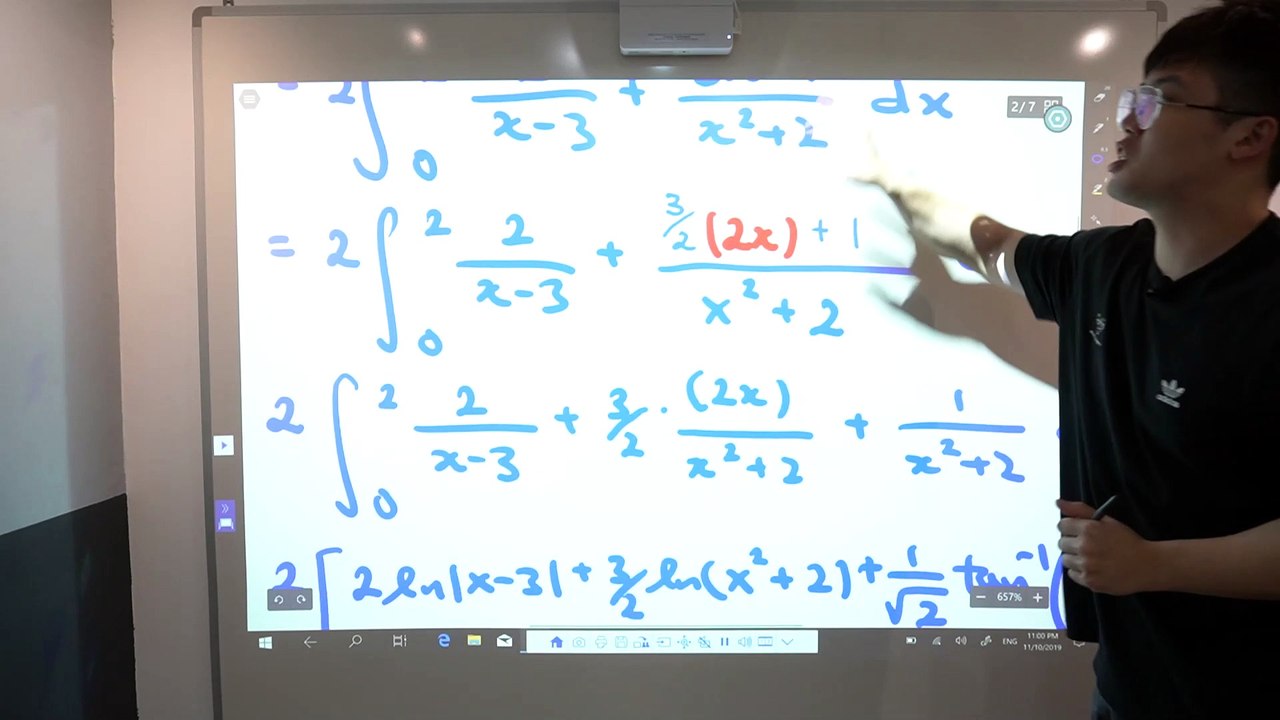 = 2 ∫₀ /(x-3) + /(x²+2) dx
2/7
= 2 ∫₀² 2/(x-3) + (3/2 (2x) + 1)/(x²+2)
2 ∫₀² 2/(x-3) + 3/2 · (2x)/(x²+2) + 1/(x²+2)
2 [ 2 ln|x-3| + 3/2 ln(x²+2) + 1/√2 tan⁻¹(
− 657% +
ENG 11:00 PM
11/10/2019